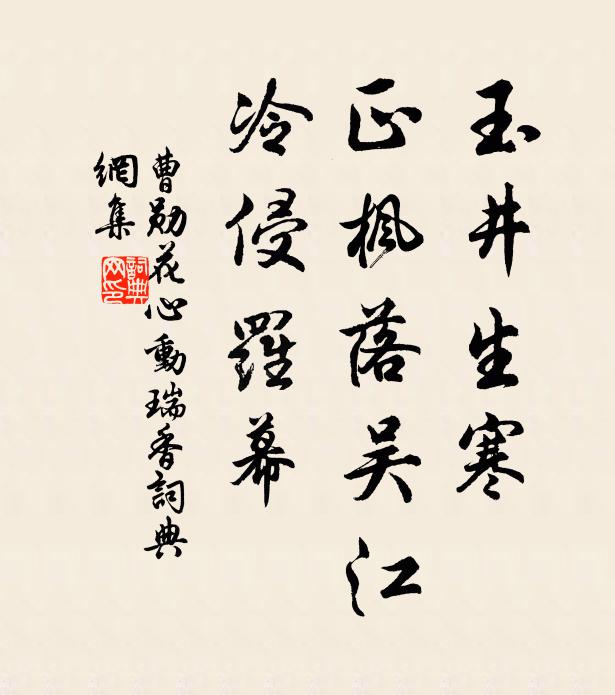 玉井生寒
正楓落吴江
冷侵羅幕
曹勛花心動瑞香詞典
網集
詞典網印